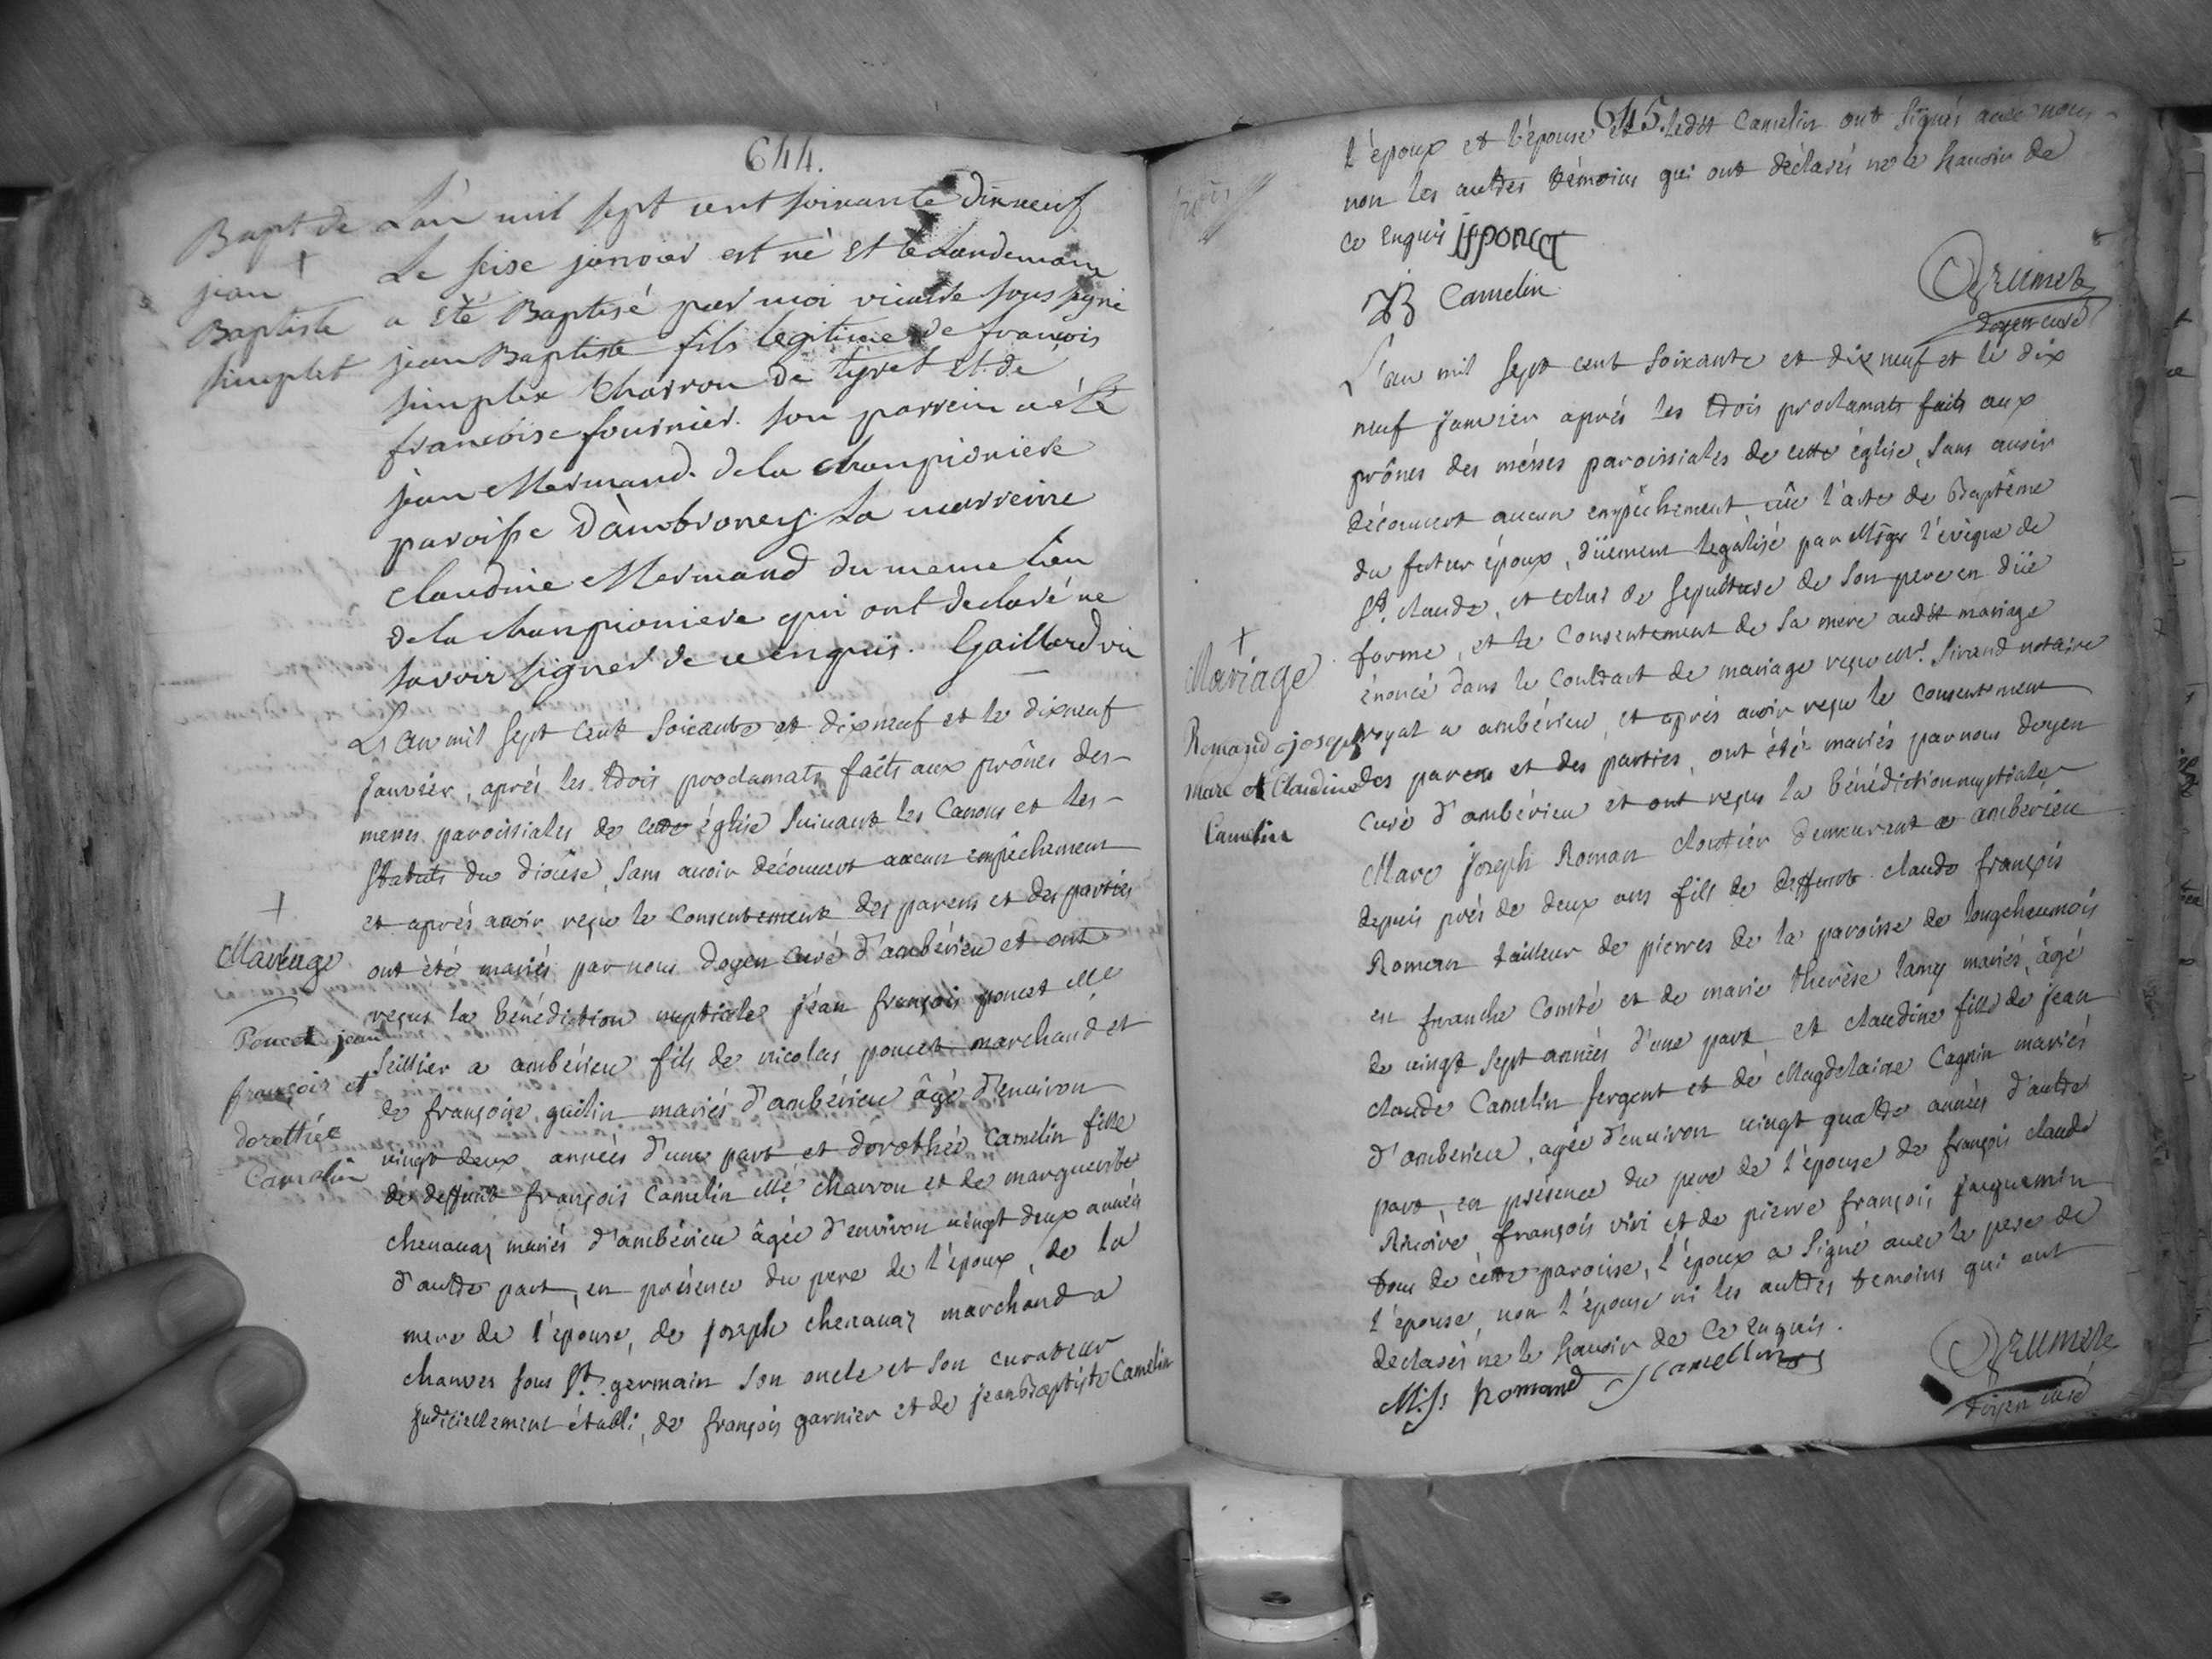 644.
Bapt de
jean
Baptiste
simplet
L'an mil sept cent soixante dixneuf
Le seise janvier est né et le Landemain
a été Baptisé par moi vicaire soussigné
jean Baptiste fils legitime de francois
simplex Charron de tiret et de
francoise fournier. son parrein a été
jean Mermand. de la championiere
paroisse D'ambronay. La marreine
Claudine Mermand du meme lieu
de la championiere qui ont declaré ne
savoir signer de ce enquis. Gaillard vic
Mariage
Poncet jean
françois et
dorothée
Camelin
L'an mil sept cent soixante et dixneuf et le dixneuf
janvier, aprés les trois proclamats faits aux prônes des
messes paroissiales de cette église suivant les Canons et les
statuts du diocèse, sans avoir découvert aucun empêchement
et aprés avoir reçu le consentement des parens et des parties
ont été mariés par nous doyen curé d'ambérieu et ont
reçus la bénédiction nuptiale jean françois poncet me
seillier a ambérieu fils de nicolas poncet marchand et
de françoise guilin mariés d'ambérieu âgé d'environ
vingt deux années d'une part et dorothée Camelin fille
de deffunt françois Camelin me charron et de marguerite
chenavaz mariés d'ambérieu âgée d'environ vingt deux années
d'autre part, en présence du pere de l'époux, de la
mere de l'épouse, de joseph chenavaz marchand a
chanves sous St. germain son oncle et son curateur
judiciellement établi, de françois garnier et de jean Baptiste Camelin
645.
l'époux et l'épouse et ledit Camelin ont signés avec nous
non les autres témoins qui ont déclarés ne le sçavoir de
ce enquis jfponcet
JB Camelin
doyen curé
Mariage
Romand joseph
marc et Claudine
Camelin
L'an mil sept cent soixante et dix neuf et le dix
neuf janvier aprés les trois proclamats faits aux
prônes des mésses paroissiales de cette église, sans avoir
découvert aucun empêchement vûe l'acte de Baptême
du futur époux, düement legalisé par Msgr l'évêque de
St. claude, et celui de sépulture de son pere en düe
forme, et le consentement de sa mere audit mariage
énoncé dans le contract de mariage reçu Mr. Sirand notaire
royal a ambérieu, et aprés avoir reçu le consentement
des parens et des parties, ont été mariés par nous doyen
curé d'ambérieu et ont reçus la bénédiction nuptiale
Marc joseph Roman cloutier demeurant a ambérieu
depuis prés de deux ans fils de deffunt claude françois
Roman tailleur de pierres de la paroisse de longchaumois
en franche Comté et de marie therèse lamy mariés, âgé
de vingt sept années d'une part et claudine fille de jean
claude Camelin sergent et de Magdelaine Cagnin mariés
d'ambérieu, agée d'environ vingt quatre années d'autre
part, en présence du pere de l'épouse de françois claude
Rivoire, françois vivi et de pierre françois jacquemin
tous de cette paroisse, l'époux a signé avec le pere de
l'épouse, non l'épouse ni les autres témoins qui ont
declarés ne le sçavoir de ce enquis.
M:js Romand jCamellin
doyen curé